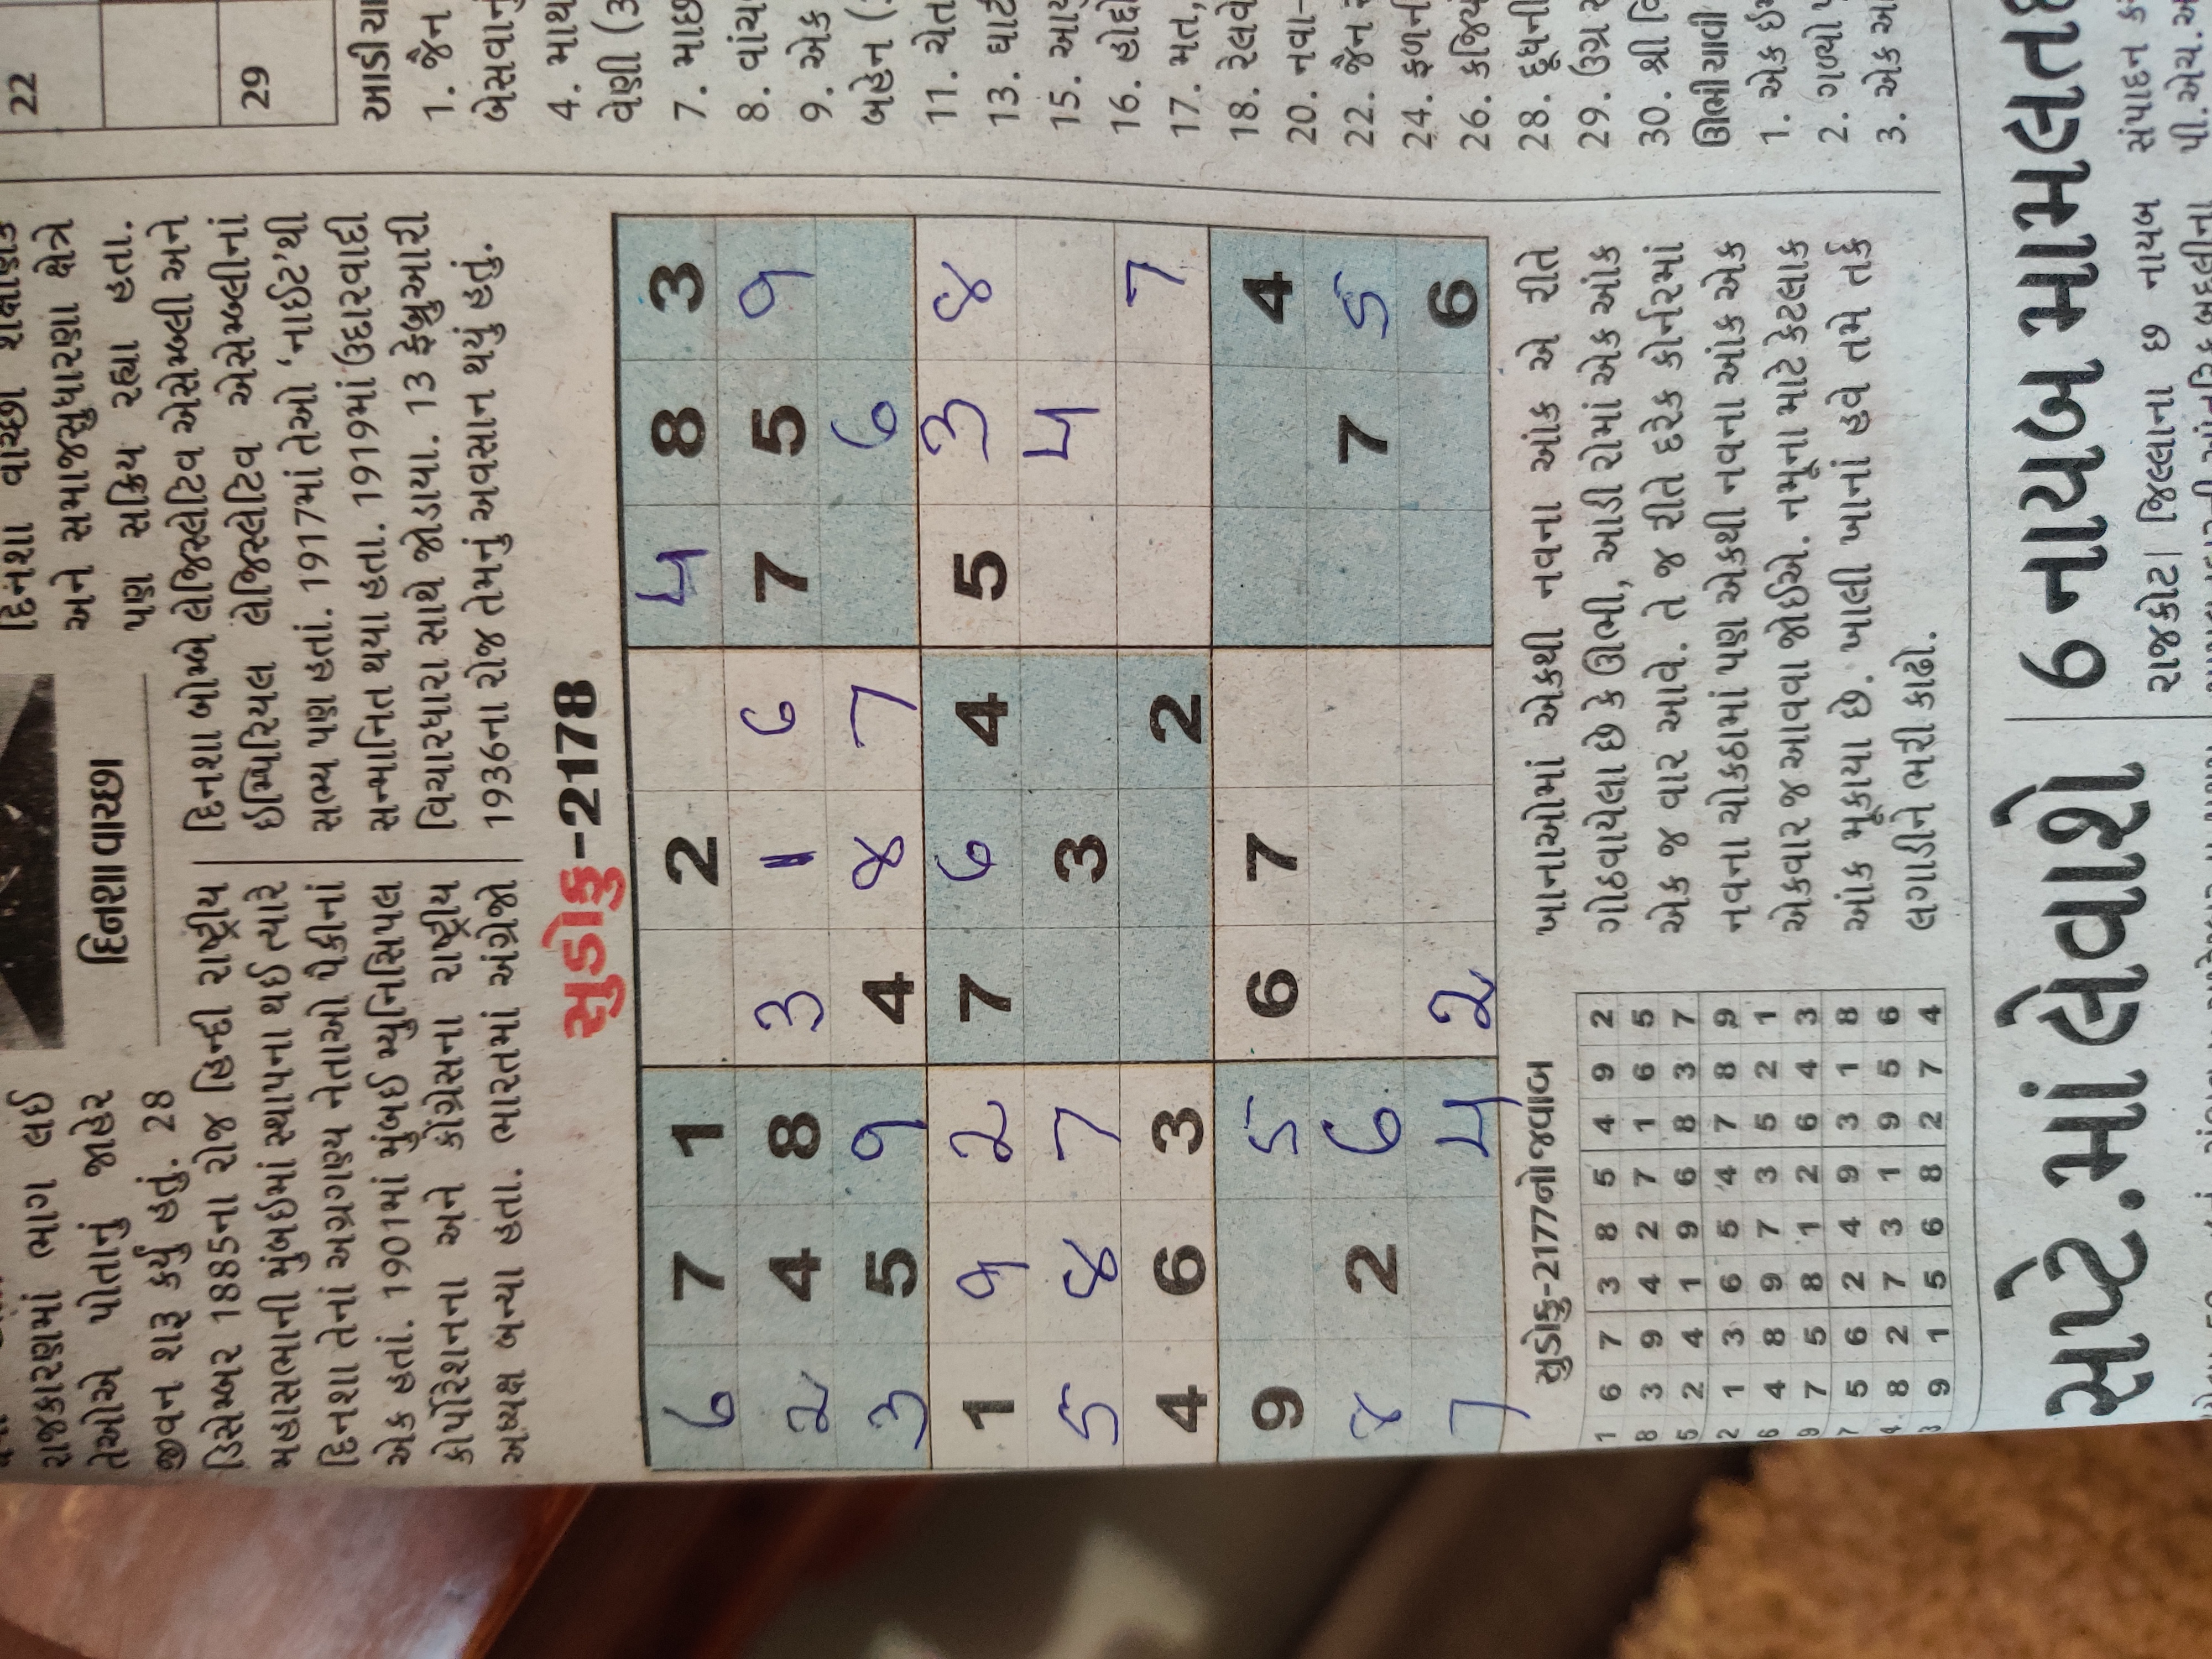 રાજકારણમાં ભાગ લઈ
તેઓએ પોતાનું જાહેર
જીવન શરૂ કર્યું હતું. 28
ડિસેમ્બર 1885ના રોજ હિન્દી રાષ્ટ્રીય
મહાસભાની મુંબઇમાં સ્થાપના થઈ ત્યારે
દિનશા તેનાં અગ્રગણ્ય નેતાઓ પૈકીનાં
એક હતાં. 1901માં મુંબઈ મ્યુનિસિપલ
કોર્પોરેશનના અને કોંગ્રેસના રાષ્ટ્રીય
અધ્યક્ષ બન્યા હતા. ભારતમાં અંગ્રેજો
દિનશા વાચ્છા
દિનશા વાચ્છા શૈક્ષણિક
અને સમાજસુધારણા ક્ષેત્રે
પણ સક્રિય રહ્યા હતા.
દિનશા બોમ્બે લેજિસ્લેટિવ એસેમ્બ્લી અને
ઇમ્પિરિયલ લેજિસ્લેટિવ એસેમ્બ્લીનાં
સભ્ય પણ હતાં. 1917માં તેઓ ‘નાઈટ’થી
સન્માનિત થયા હતા. 1919માં ઉદારવાદી
વિચારધારા સાથે જોડાયા. 13 ફેબ્રુઆરી
1936ના રોજ તેમનું અવસાન થયું હતું.
સુડોકુ-2178
6 7 1 2 4 8 3
2 4 8 3 1 6 7 5 9
3 5 9 4 8 7 6
1 9 2 7 6 4 5 3 8
5 8 7 3 4
4 6 3 2 7
9 5 6 7 4
8 2 6 7 5
7 4 2 6
સુડોકુ-2177નો જવાબ
1 6 7 3 8 5 4 9 2
8 3 9 4 2 7 1 6 5
5 2 4 1 9 6 8 3 7
2 1 3 6 5 4 7 8 9
6 4 8 9 7 3 5 2 1
9 7 5 8 1 2 6 4 3
7 5 6 2 4 9 3 1 8
4 8 2 7 3 1 9 5 6
3 9 1 5 6 8 2 7 4
ખાનાઓમાં એકથી નવના આંક એ રીતે
ગોઠવાયેલા છે કે ઊભી, આડી રોમાં એક આંક
એક જ વાર આવે. તે જ રીતે દરેક કોર્નરમાં
નવના ચોકઠામાં પણ એકથી નવના આંક એક
એકવાર જ આવવા જોઈએ. નમૂના માટે કેટલાક
આંક મૂકાયા છે. ખાલી ખાનાં હવે તમે તર્ક
લગાડીને ભરી કાઢો.
22
29
આડી ચા
1. જૈન
બેસવાનું
4. માથ
વેણી (3
7. માછ
8. વાંચ
9. એક
બહેન (
11. ચેત
13. ઘાટી
15. આયુ
16. હોદ્દો
17. મત,
18. રેલવે
20. નવા-
22. જૈન
24. ફળની
26. કજિય
28. દૂધની
29. ઉગ્ર
30. શ્રી વિ
ઊભી ચાવી
1. એક ઇ
2. ગળ્યો
3. એક આ
સપ્ટે.માં લેવાશે
6 નાયબ મામલત
રાજકોટ| જિલ્લાના છ નાયબ
સંપાદન ક
પી.એચ.